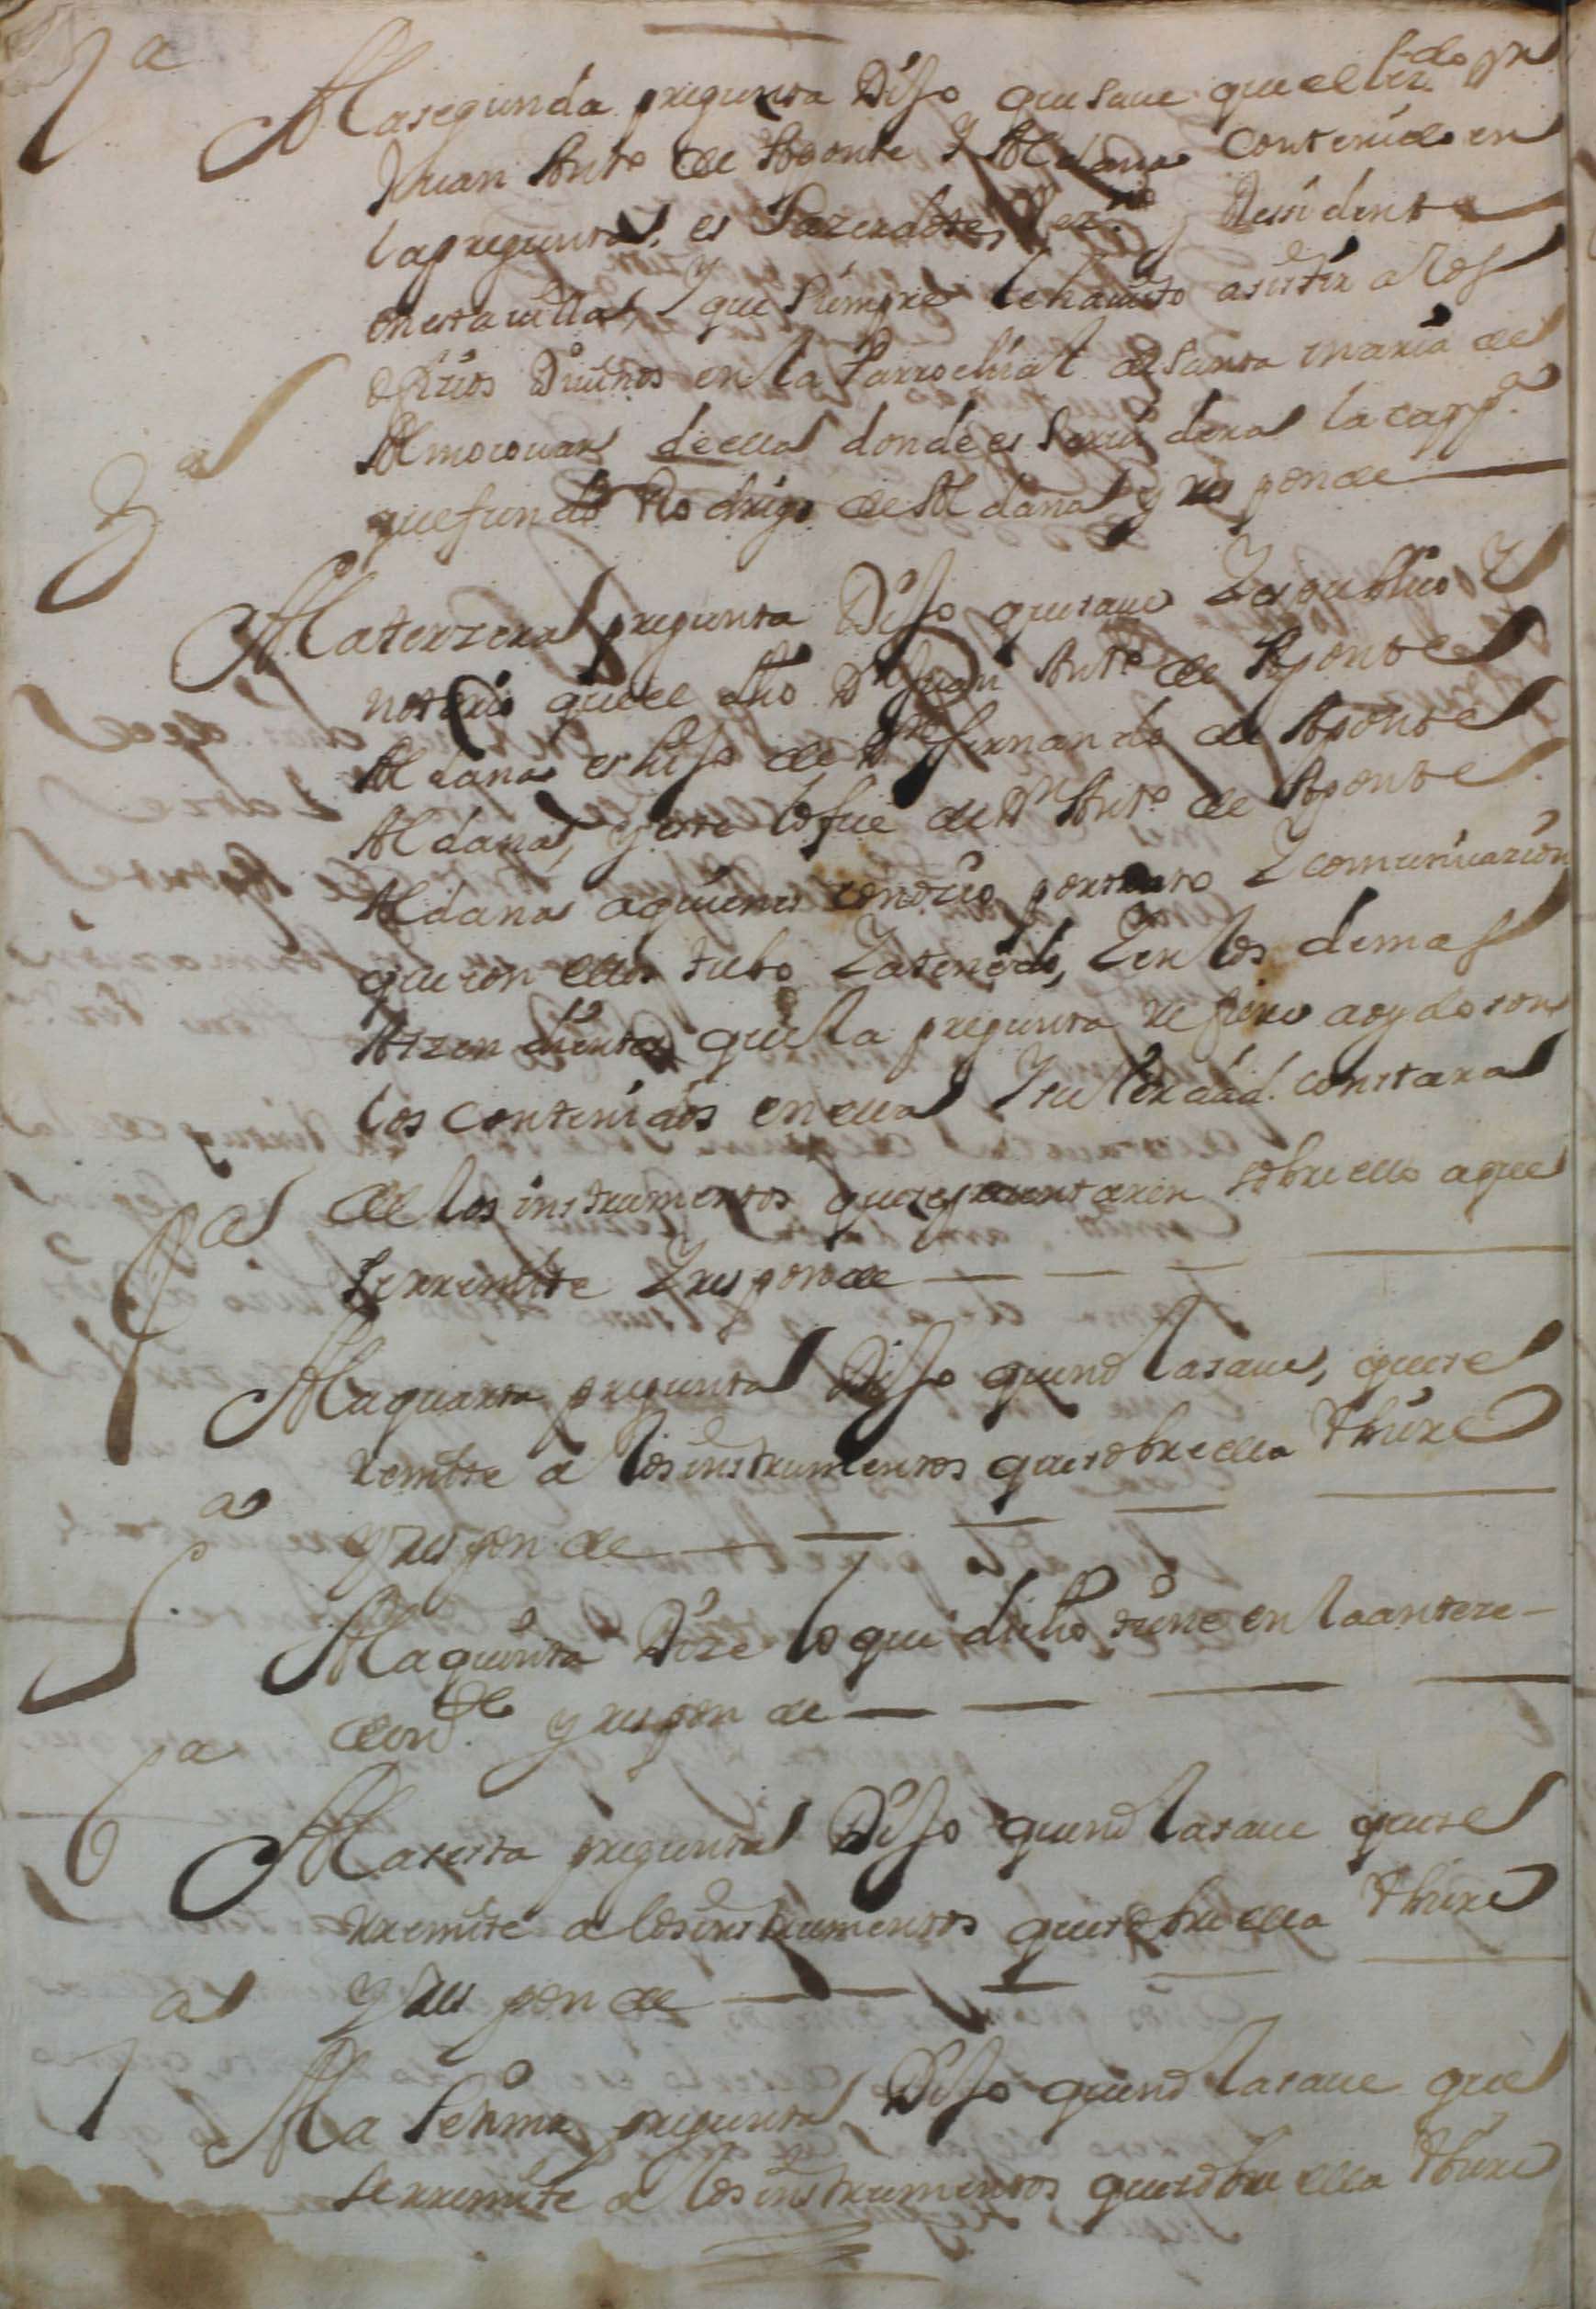 2ª
A la segunda pregunta Dijo que save que el liz.do Dn
Juan Antº de Aponte y Aldana contenido en
la pregunta, es sazerdote, vezº y Residente
en esta villa, y que siempre le ha visto asistir a los
ofizios Diuinos en la Parrochial de Santa maria de
Almocouar de ella donde es seruidera la cappª
que fundo Rodrigo de Aldana y responde
3ª
A la terzera pregunta Dijo que saue y es publico y
notorio que el dho Dn Juan Antº de Aponte
Aldana es hijo de Dn fernando de Aponte
Aldana, y este lo fue de Dn Antº de Aponte
Aldana a quienes conozio por trato y comunicazion
que con ellos tubo y a tenido, y en los demas
Aszendientes que la pregunta refiere a oydo son
los contenidos en ella y su verdad constara
de los instrumentos que se presentaren sobre ello a que
se rremite y responde
4ª
A la quarta pregunta Dijo que no la saue, que se
remite a los instrumentos que sobre ella hubiere
y responde
5ª
A la quinta Dize lo que dicho tiene en la anteze-
dente y responde
6ª
A la sesta pregunta Dijo que no la saue que se
rremite a los instrumentos que sobre ella hubiere
y responde
7ª
A la setima pregunta Dijo que no la saue que
se rremite a los instrumentos que sobre ella hubiere